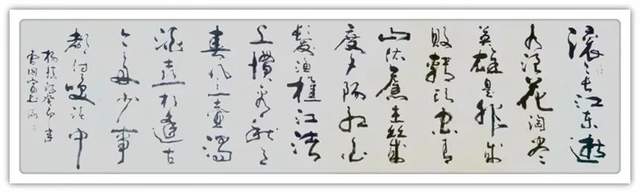 滚〻长江东逝
水浪花淘尽
英雄是非成
敗轉头空青
山依舊在幾
度夕阳红白
髮渔樵江渚
上惯看秋月
春风一壶濁
酒喜相逢古
今多少事
都付笑谈中
杨慎临江仙